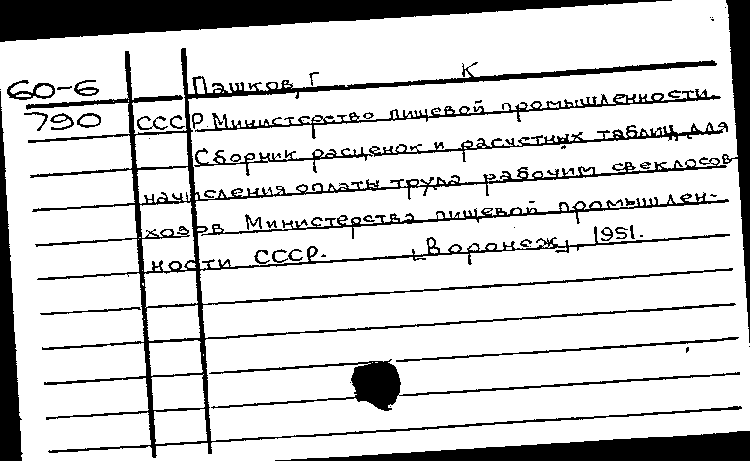 60-6 Пашков, Г К
790 СССР Министерство пищевой промышленности.
Сборник расценок и расчетных таблиц для
начисления оплаты труда рабочим свеклосов-
хозов Министерства пищевой промышлен-
ности СССР. [Воронеж], 1951.